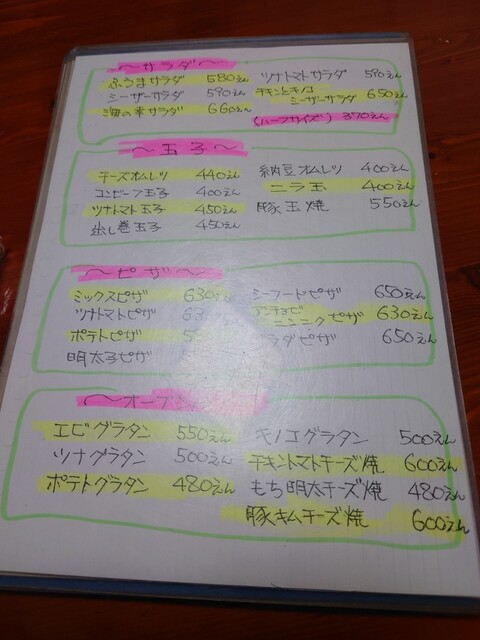 ～サラダ～
ふうまサラダ 580えん ツナトマトサラダ 590えん
シーザーサラダ 590えん チキンとキノコ
シーザーサラダ 650えん
海の幸サラダ 660えん (ハーフサイズ) 370えん
～玉子～
チーズオムレツ 440えん 納豆オムレツ 400えん
コンビーフ玉子 400えん ニラ玉 400えん
ツナトマト玉子 450えん 豚玉焼 550えん
出し巻玉子 450えん
～ピザ～
ミックスピザ 630えん シーフードピザ 650えん
ツナトマトピザ アンチョビ
ニンニクピザ 630えん
ポテトピザ ラダピザ 650えん
明太子ピザ
～オーブ
エビグラタン 550えん キノコグラタン 500えん
ツナグラタン 500えん チキントマトチーズ焼 600えん
ポテトグラタン 480えん もち明太チーズ焼 480えん
豚キムチーズ焼 600えん